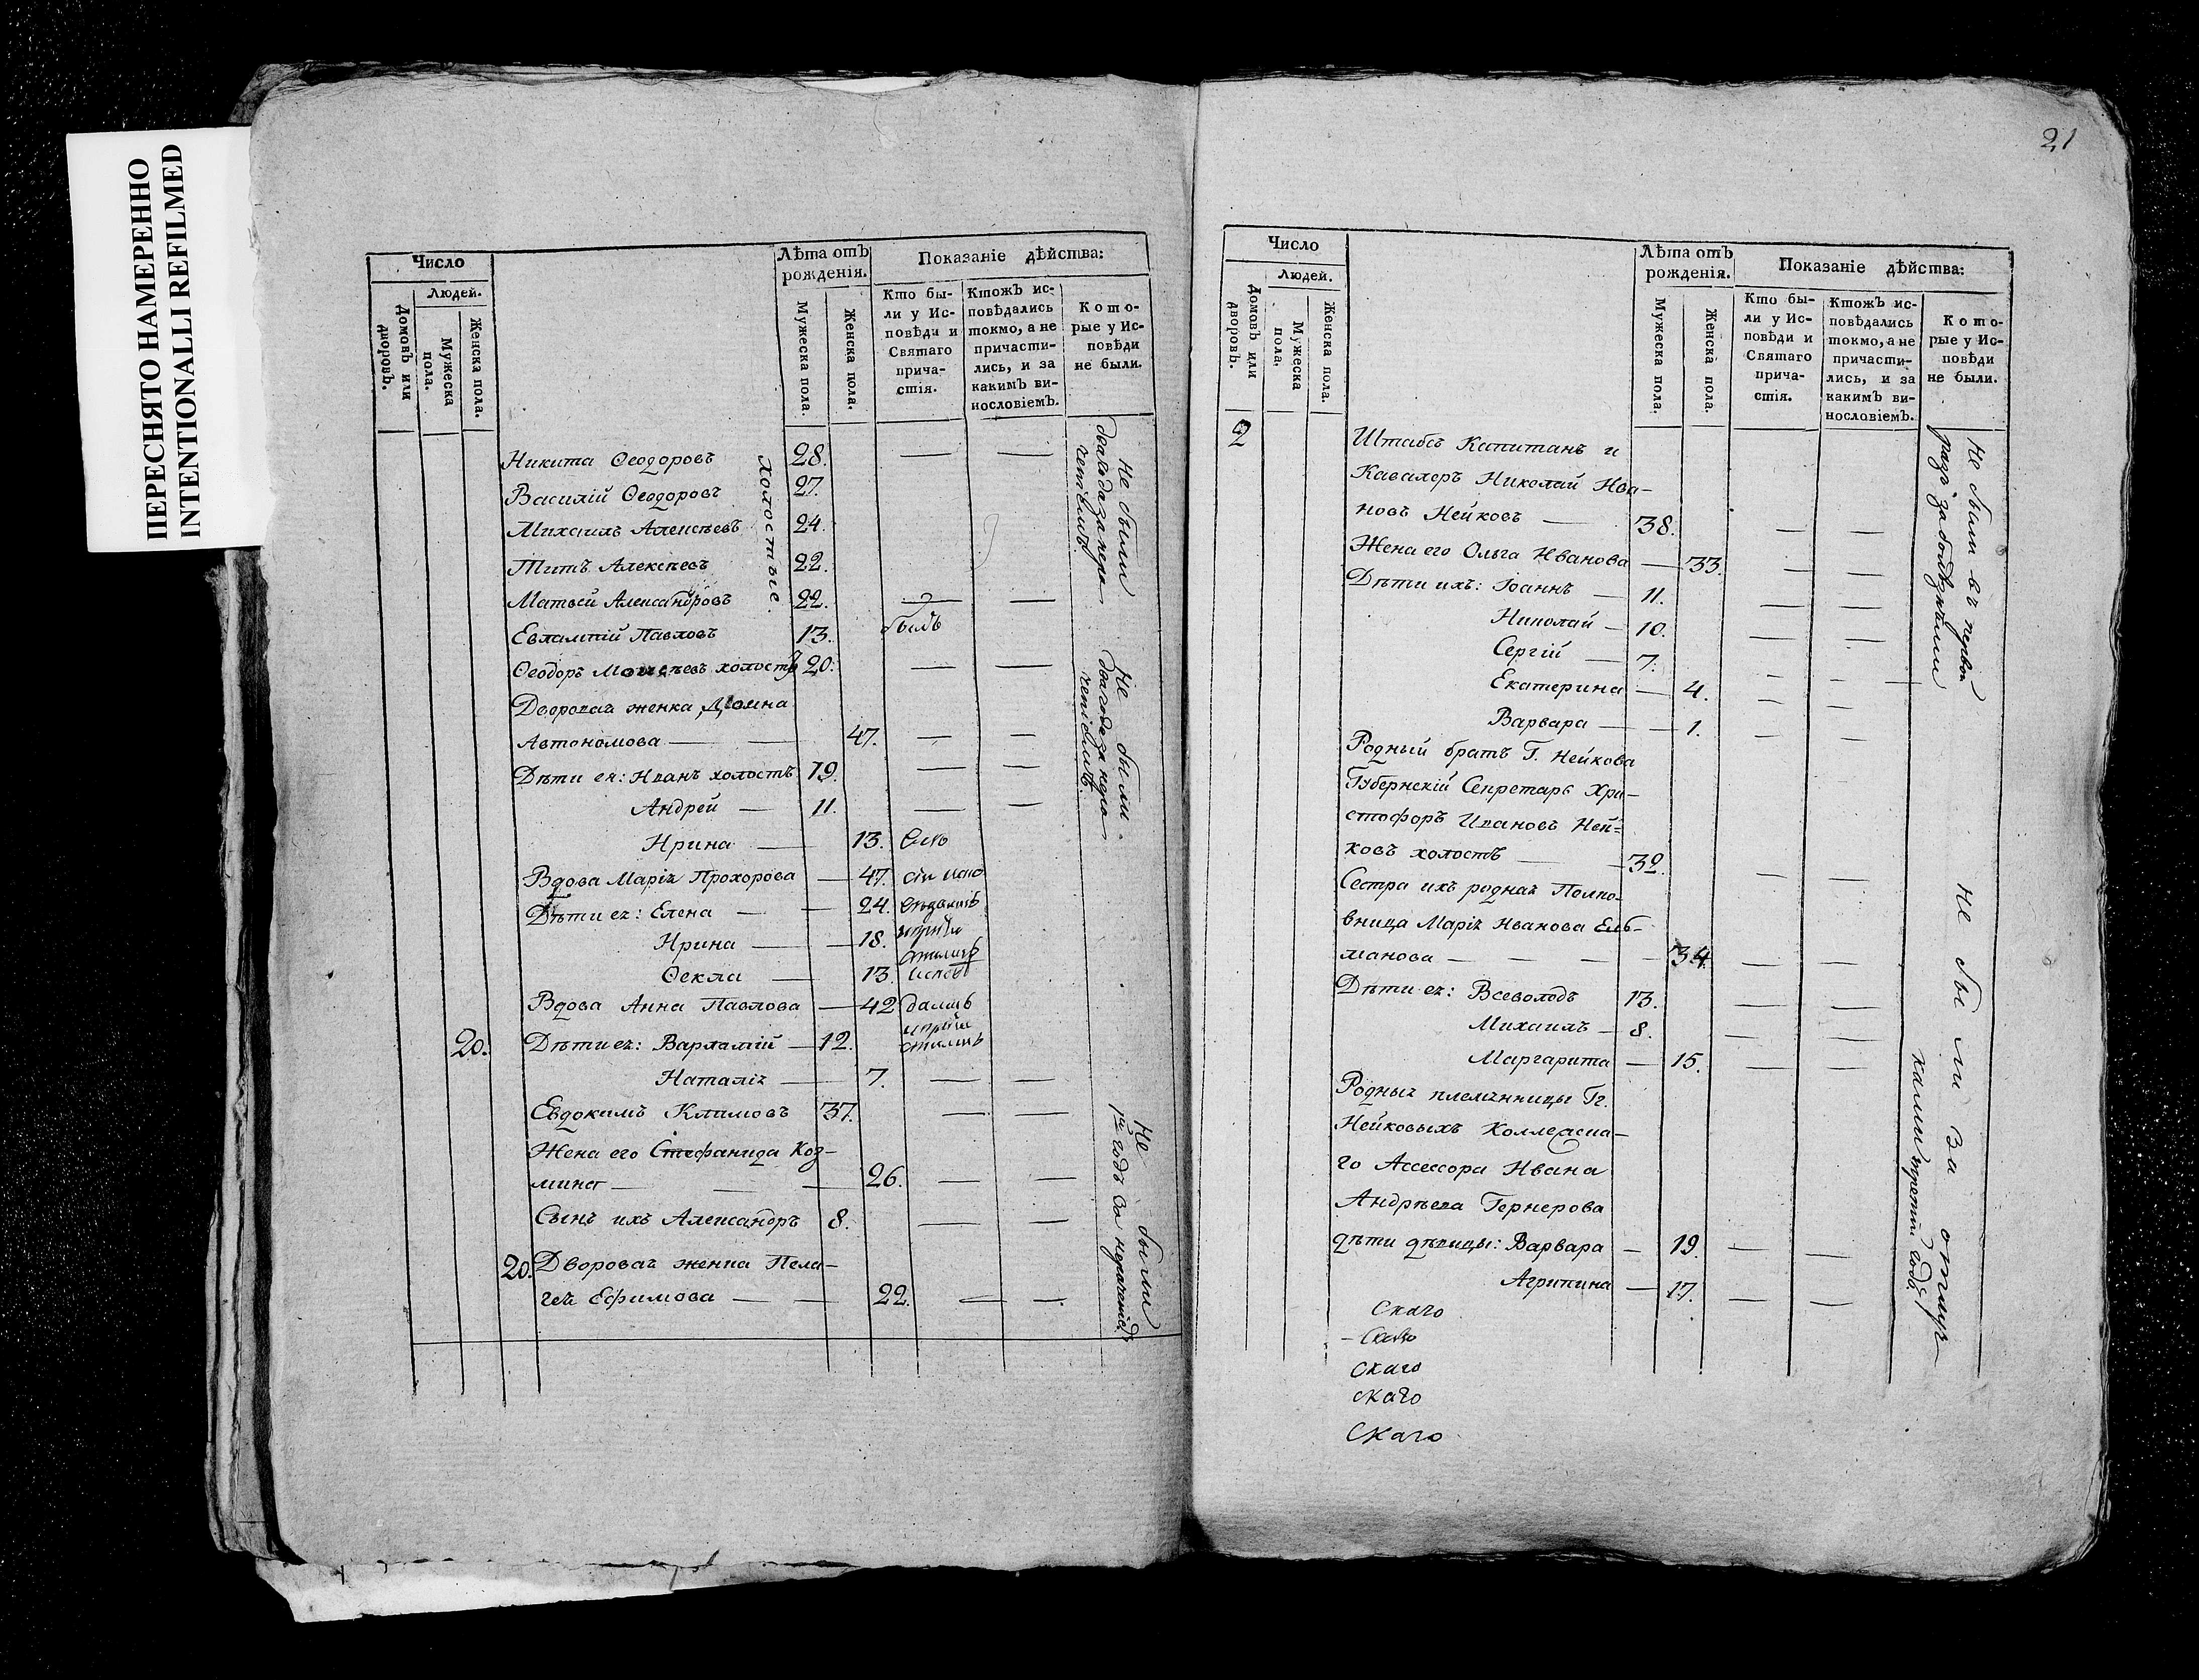 ПЕРЕСНЯТО НАМЕРЕННО
INTENTIONALLI REFILMED
Число
Людей.
Домовъ или дворовъ.
Мужеска пола.
Женска пола.
Лѣта отъ рожденія.
Мужеска пола.
Женска пола.
Показаніе дѣйства:
Кто бы-
ли у Ис-
повѣди и
Святаго
прича-
стія.
Ктожъ ис-
повѣдались
токмо, а не
причасти-
лись, и за
какимъ ви-
нословіемъ.
Кото-
рые у Ис-
повѣди
не были.
Никита Ѳеодоровъ 28.
Василій Ѳеодоровъ 27.
Михаилъ Алексѣевъ 24.
Титъ Алексѣевъ 22.
Матвей Александровъ 22.
холостые.
Евлампій Павловъ 13. былъ
Ѳеодоръ Моисѣевъ холостъ 20.
Дворовая женка Домна
Автономова — 47.
Дѣти ея: Иванъ холостъ 19.
Андрей — 11.
Ирина — 13.
Вдова Марія Прохорова — 47.
Дѣти ея: Елена — 24.
Ирина — 18.
Ѳекла — 13.
Вдова Анна Павлова — 42
20. Дѣти ея: Варлампій — 12.
Наталія — 7.
Евдокимъ Климовъ 37.
Жена его Стефанида Коз-
мина — 26.
Сынъ ихъ Александръ 8.
20. Дворовая женка Пела-
гея Ефимова — 22.
Не были
Не были
Не были
1й годъ за нераченіемъ
21
Число
Людей.
Домовъ или дворовъ.
Мужеска пола.
Женска пола.
Лѣта отъ рожденія.
Мужеска пола.
Женска пола.
Показаніе дѣйства:
Кто бы-
ли у Ис-
повѣди и
Святаго
прича-
стія.
Ктожъ ис-
повѣдались
токмо, а не
причасти-
лись, и за
какимъ ви-
нословіемъ.
Кото-
рые у Ис-
повѣди
не были.
2 Штабсъ Капитанъ и
Кавалеръ Николай Ива-
новъ Нейковъ — 38.
Жена его Ольга Иванова — 33.
Дѣти ихъ: Іоаннъ — 11.
Николай — 10.
Сергій — 7.
Екатерина — 4.
Варвара — 1.
Родный братъ Г. Нейкова
Губернскій Секретарь Хри-
стофоръ Ивановъ Ней-
ковъ холостъ — 32.
Сестра ихъ родная Полко-
вница Марія Иванова Ель-
манова — 34.
Дѣти ея: Всеволодъ 13.
Михаилъ — 8.
Маргарита — 15.
Родныя племянницы Гг.
Нейковыхъ Коллежска-
го Ассесора Ивана
Андрѣева Гернерова
дѣти дѣвицы: Варвара — 19.
Агрипина — 17.
Не были въ первой
разъ за
Не были за отлуч-
ками третій годъ
Скаго
Скаго
Скаго
скаго
Скаго